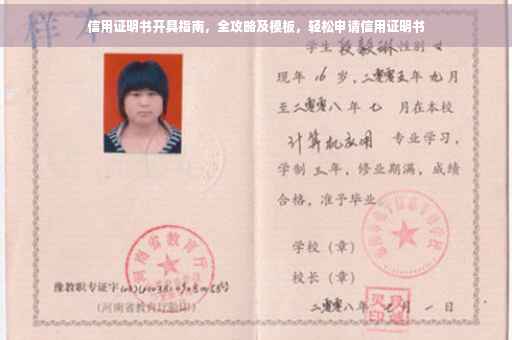 信用证明书开具指南，全攻略及模板，轻松申请信用证明书
样本
学生段毅琳性别女
现年16岁，二零零五年九月
至二零零八年七月在本校
计算机应用专业学习，
学制三年，修业期满，成绩
合格，准予毕业
学校（章）
校长（章）
二零零八年七月一日
河南省教育厅
豫教职专证字
（河南省教育厅验印）